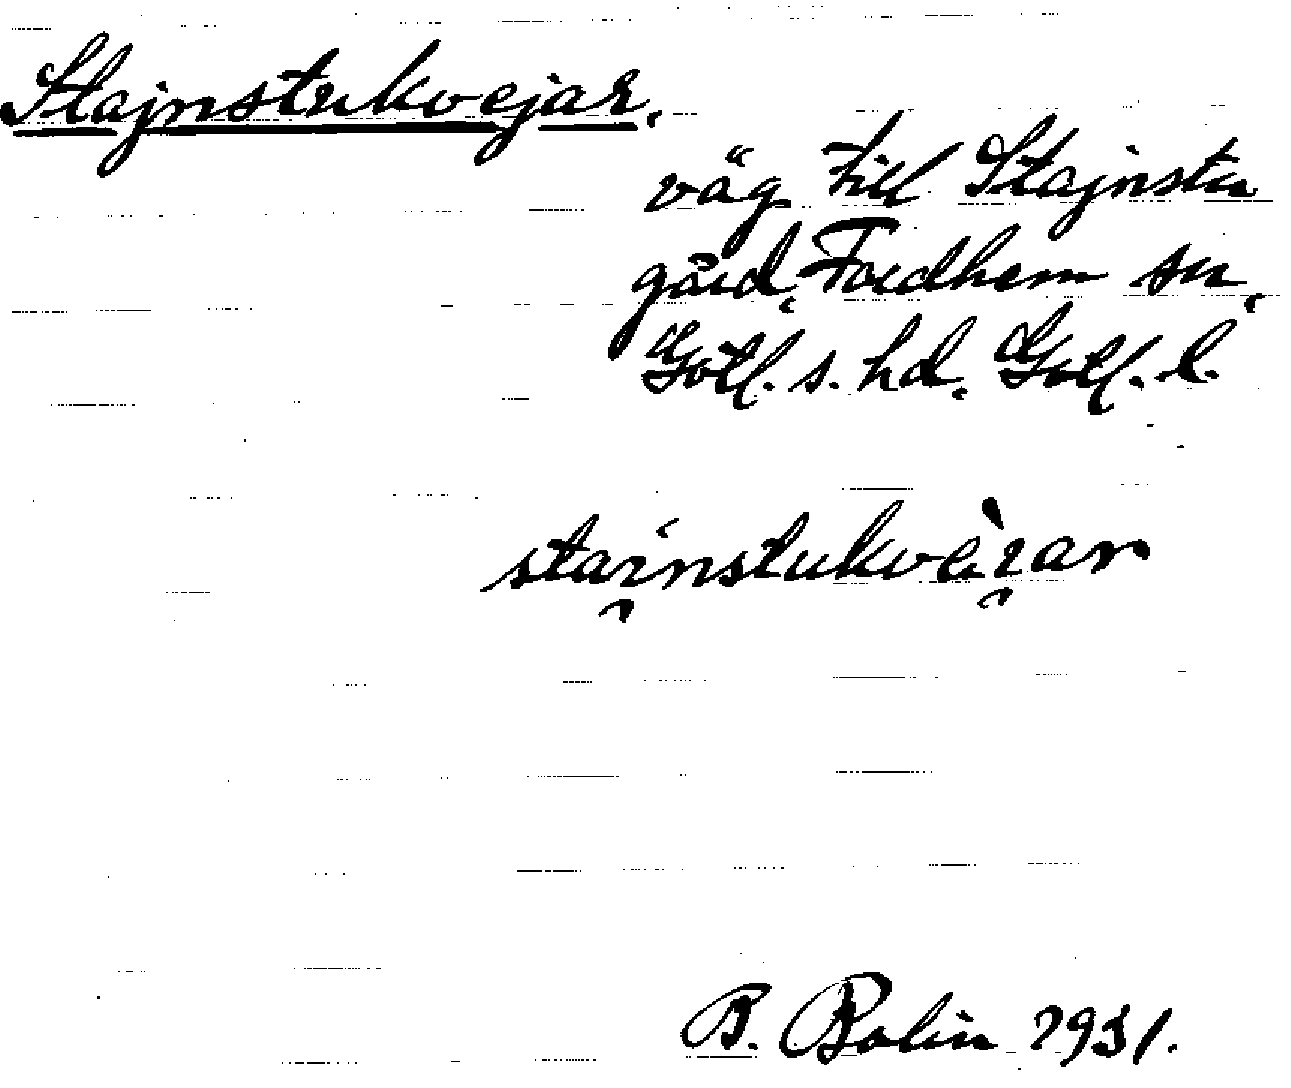 Stajnstukvejar.
väg till Stajnstu
gård, Fardhem sn,
Gotl. s. hd. Gotl. l.
stai̯nstukvài̯ar
B. Bolin 1931.